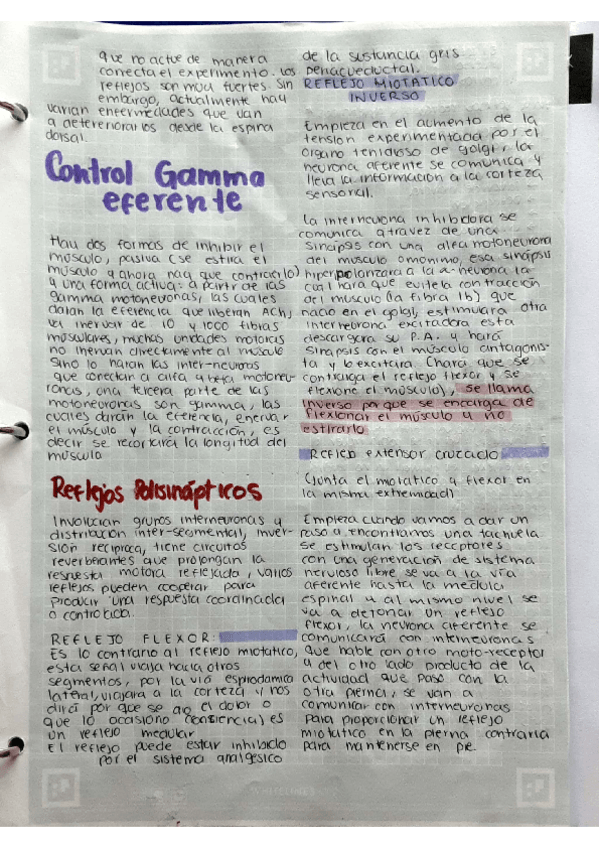 que no actue de manera
conecta el experimento. Los
reflejos son muy fuertes. Sin
embargo, actualmente hay
varian enfermedades que van
a deteriorarlos desde la espina
dorsal.
Control Gamma
eferente
Hay dos formas de inhibir el
músculo, pasiva (se estira el
músculo y ahora hay que contraerlo)
y una forma activa: a partir de las
gamma motoneuronas, las cuales
daran la eferencia que liberan ACh,
va inervar de 10 y 1000 fibras
musculares, muchas unidades motoras
no inervan directamente al músculo
sino lo harán las inter-neuronas
que conectan a alfa y beta motoneu-
ronas, una tercera parte de las
motoneuronas son gamma, las
cuales daran la eferencia, enervar
el músculo y la contracción, es
decir se recortara la longitud del
músculo
Reflejos Polisinápticos
Involucran grupos interneuronas y
distribución inter-segmental, inver-
sión reciproca, tiene circuitos
reverberantes que prolongan la
respuesta motora reflejado, varios
reflejos pueden cooperar para
producir una respuesta coordinada
o controlada.
REFLEJO FLEXOR:
Es lo contrario al reflejo miotatico,
esta señal viaja hacia otros
segmentos, por la vía espirodamica
lateral, viajara a la corteza y nos
dirá por que se dio el dolor o
que lo ocasiono (consciencia) es
un reflejo medular
El reflejo puede estar inhibido
por el sistema analgésico
de la sustancia gris
periacueductal.
REFLEJO MIOTATICO
INVERSO
Empieza en el aumento de la
tension experimentada por el
órgano tendidoso de golgi, la
neurona aferente se comunica y
lleva la información a la corteza
sensorial.
La interneurona inhibidora se
comunica atravez de una
sinapsis con una alfa motoneurona
del músculo omonimo, esa sinápsis
hiperpolarizara a la α-neurona la
cual hara que evite la contracción
del músculo (la fibra 1b) que
nacio en el golgi, estimulara otra
interneurona excitadora esta
descargara su P.A. y hará
sinapsis con el músculo antagonis-
ta y lo excitara. (hara que se
contraiga el reflejo flexor y se
flexione el músculo), se llama
inverso ya que se encarga de
flexionar el músculo y no
estirarlo
Reflejo extensor cruzado
(Junta el miotatico y flexor en
la misma extremidad)
Empieza cuando vamos a dar un
paso a encontramos una tachuela
se estimulan los receptores
con una generacion de sistema
nervioso libre se va a la vía
aferente hasta la medula
espinal y al mismo nivel se
va a detonar un reflejo
flexor, la neurona aferente se
comunicará con interneuronas
que hable con otro moto-receptor
y del otro lado producto de la
actividad que paso con la
otra pierna, se van a
comunicar con interneuronas
para proporcionar un reflejo
miotatico en la pierna contraria
para mantenerse en pie.